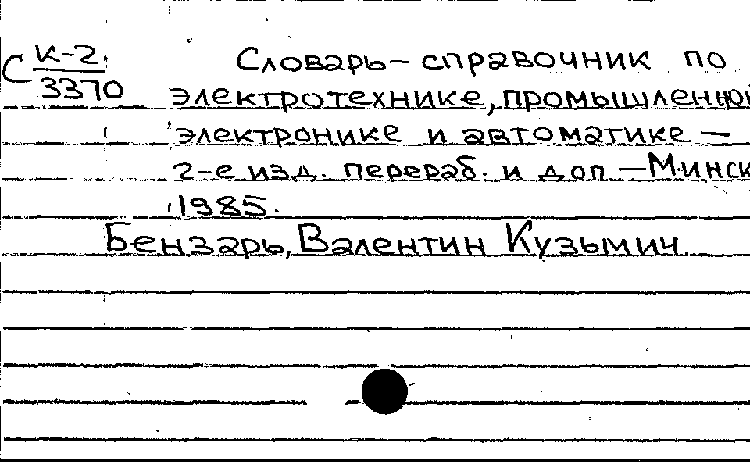 С К-2
3370
Словарь-справочник по
электротехнике, промышленной
электронике и автоматике —
2-е изд. перераб. и доп. — Минск
1985.
Бензарь, Валентин Кузьмич